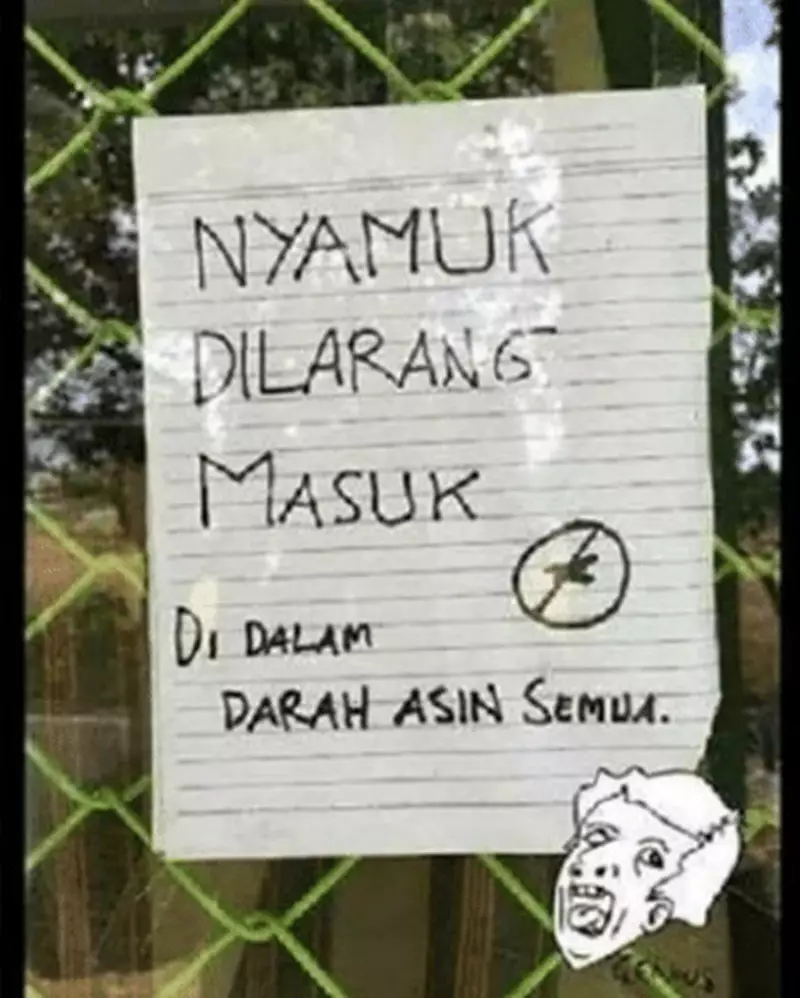 NYAMUK
DILARANG
MASUK
DI DALAM
DARAH ASIN SEMUA.
GENIUS